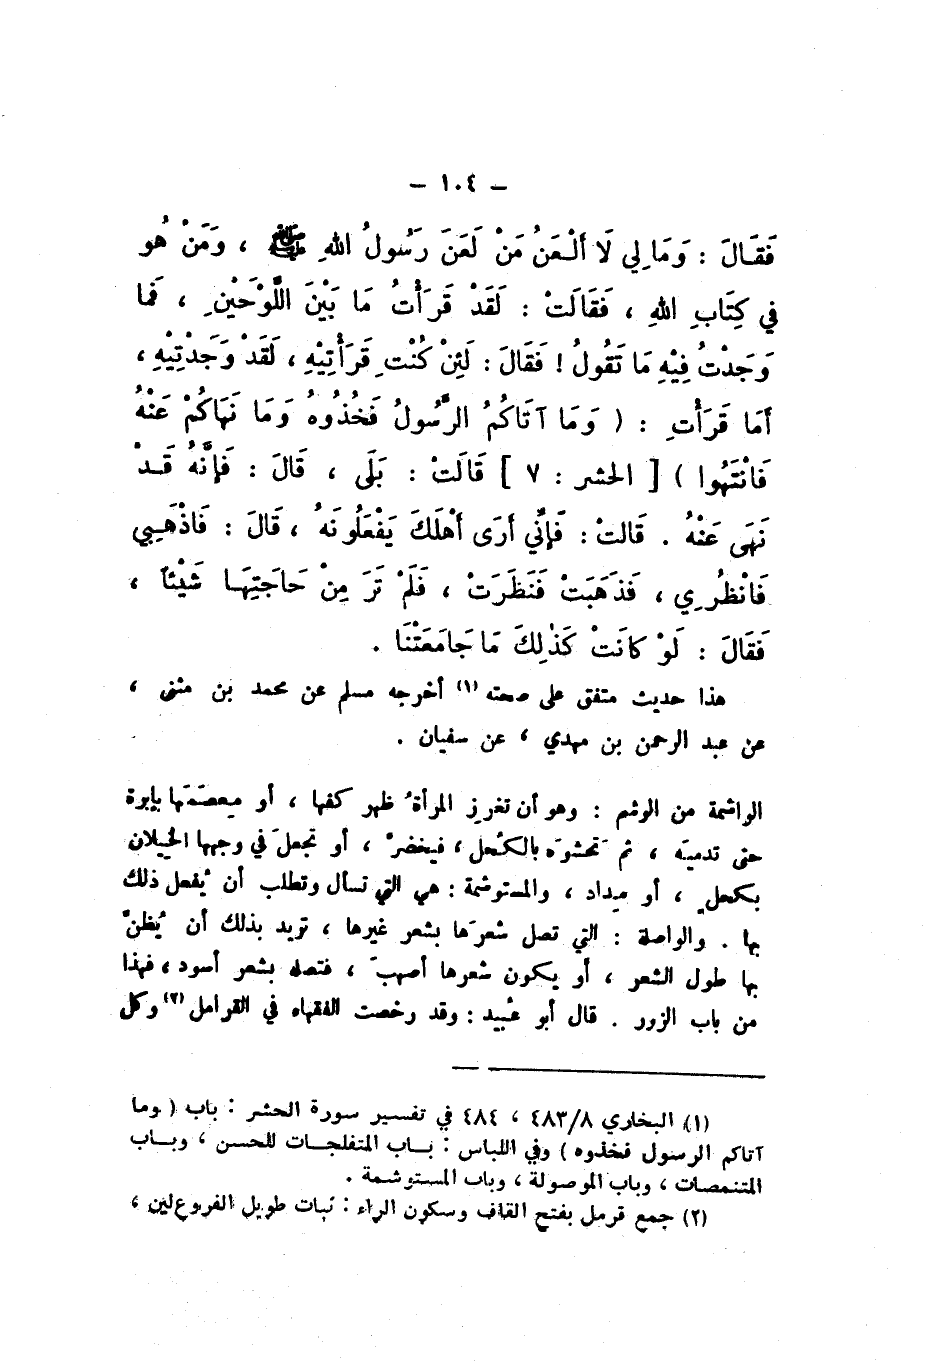 – ١٠٤ –
فَقَالَ : وَمَا لِي لَا أَلْعَنُ مَنْ لَعَنَ رَسُولُ اللهِ ﷺ ، وَمَنْ هُو
في كِتَابِ اللهِ ، فَقَالَتْ : لَقَدْ قَرَأْتُ مَا بَيْنَ اللَّوْحَيْنِ ، فَمَا
وَجَدْتُ فِيْهِ مَا تَقُولُ ! فَقَالَ : لَئِنْ كُنْتِ قَرَأْتِيْهِ ، لَقَدْ وَجَدْتِيْهِ ،
أَمَا قَرَأْتِ : ( وَمَا آتَاكُمُ الرَّسُولُ فَخُذُوهُ وَمَا نَهَاكُمْ عَنْهُ
فَانْتَهُوا ) [ الحشر : ٧ ] قَالَتْ : بَلَى ، قَالَ : فَإِنَّهُ قَدْ
نَهَى عَنْهُ . قَالتْ : فَإِنِّي أَرَى أَهْلَكَ يَفْعَلُونَهُ ، قَالَ : فَاذْهَبِي
فَانْظُرِي ، فَذَهَبَتْ فَنَظَرَتْ ، فَلَمْ تَرَ مِنْ حَاجَتِهَا شَيْئاً ،
فَقَالَ : لَوْ كانَتْ كَذٰلِكَ مَا جَامَعَتْنَا .
هذا حديث متفق على صحته (١) أخرجه مسلم عن محمد بن مثنى ،
عن عبد الرحمن بن مهدي ، عن سفيان .
الواشمة من الوشم : وهو أن تغرِز المرأةُ ظهر كفها ، أو مِعصَمَها بإبرة
حتى تدميَه ، ثم تَحشوَه بالكُحل ، فيخضرْ ، أو تجعلَ في وجهها الخيلان
بكحلٍ ، أو مِداد ، والمستوشمة : هي التي تسأل وتطلب أن يُفعل ذلك
بها . والواصلة : التي تصل شعرَها بشعر غيرها ، تريد بذلك أن يُظنَّ
بها طول الشعر ، أو يكون شعرها أصهبَ ، فتصله بشعر أسود ، فهذا
من باب الزور . قال أبو عُبيد : وقد رخصت الفقهاء في القرامل (٢) وكل
(١) البخاري ٤٨٣/٨ ، ٤٨٤ في تفسير سورة الحشر : باب ( وما
آتاكم الرسول فخذوه ) وفي اللباس : باب المتفلجات للحسن ، وباب
المتنمصات ، وباب الموصولة ، وباب المستوشمة .
(٢) جمع قرمل بفتح القاف وسكون الراء : نبات طويل الفروع لين ،